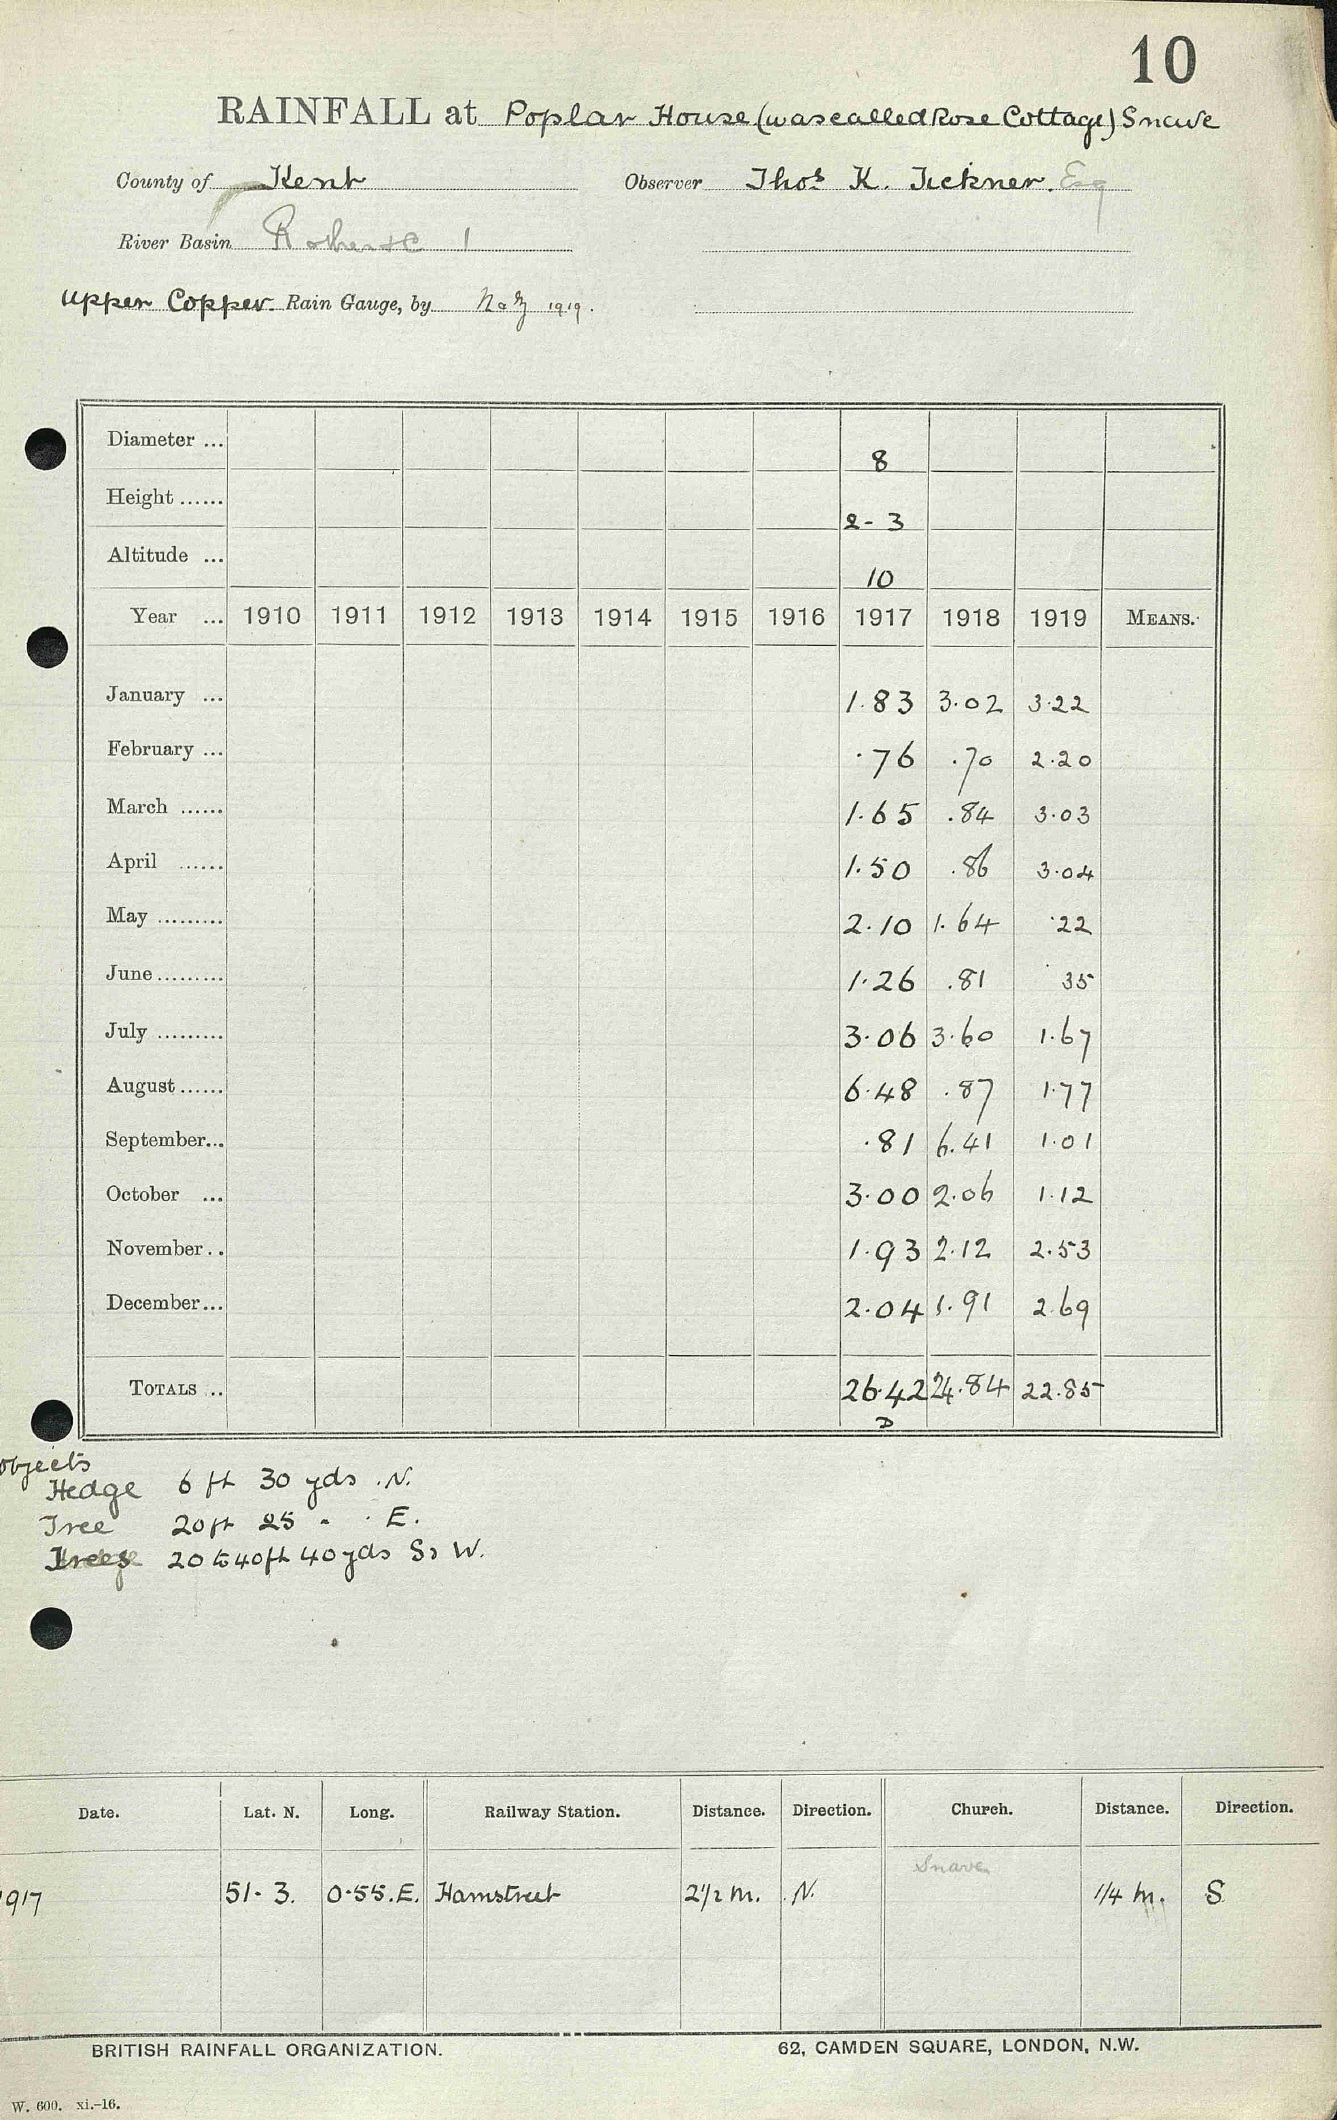 10
RAINFALL at Poplar House (was called Rose Cottage) Snave
County of Kent Observer Thos. K. Tickner. Esq
River Basin Rother &c 1
Upper Copper. Rain Gauge, by Neg 1919.
Diameter ... 8
Height ...... 2-3
Altitude ... 10
Year ... 1910 1911 1912 1913 1914 1915 1916 1917 1918 1919 MEANS.
January ... 1.83 3.02 3.22
February ... .76 .70 2.20
March ...... 1.65 .84 3.03
April ...... 1.50 .86 3.04
May ......... 2.10 1.64 .22
June ......... 1.26 .81 .35
July ......... 3.06 3.60 1.67
August ...... 6.48 .87 1.77
September... .81 6.41 1.01
October ... 3.00 2.06 1.12
November .. 1.93 2.12 2.53
December ... 2.04 1.91 2.69
TOTALS ... 26.42 24.84 22.85
D
objects
Hedge 6 ft 30 yds N.
Tree 20 ft 25 " E.
Trees 20 to 40 ft 40 yds S & W.
Date. Lat. N. Long. Railway Station. Distance. Direction. Church. Distance. Direction.
Snave
1917 51-3. 0-55.E. Hamstreet 2 1/2 m. N. 1/4 m. S
BRITISH RAINFALL ORGANIZATION. 62, CAMDEN SQUARE, LONDON, N.W.
W. 600. xi.-16.